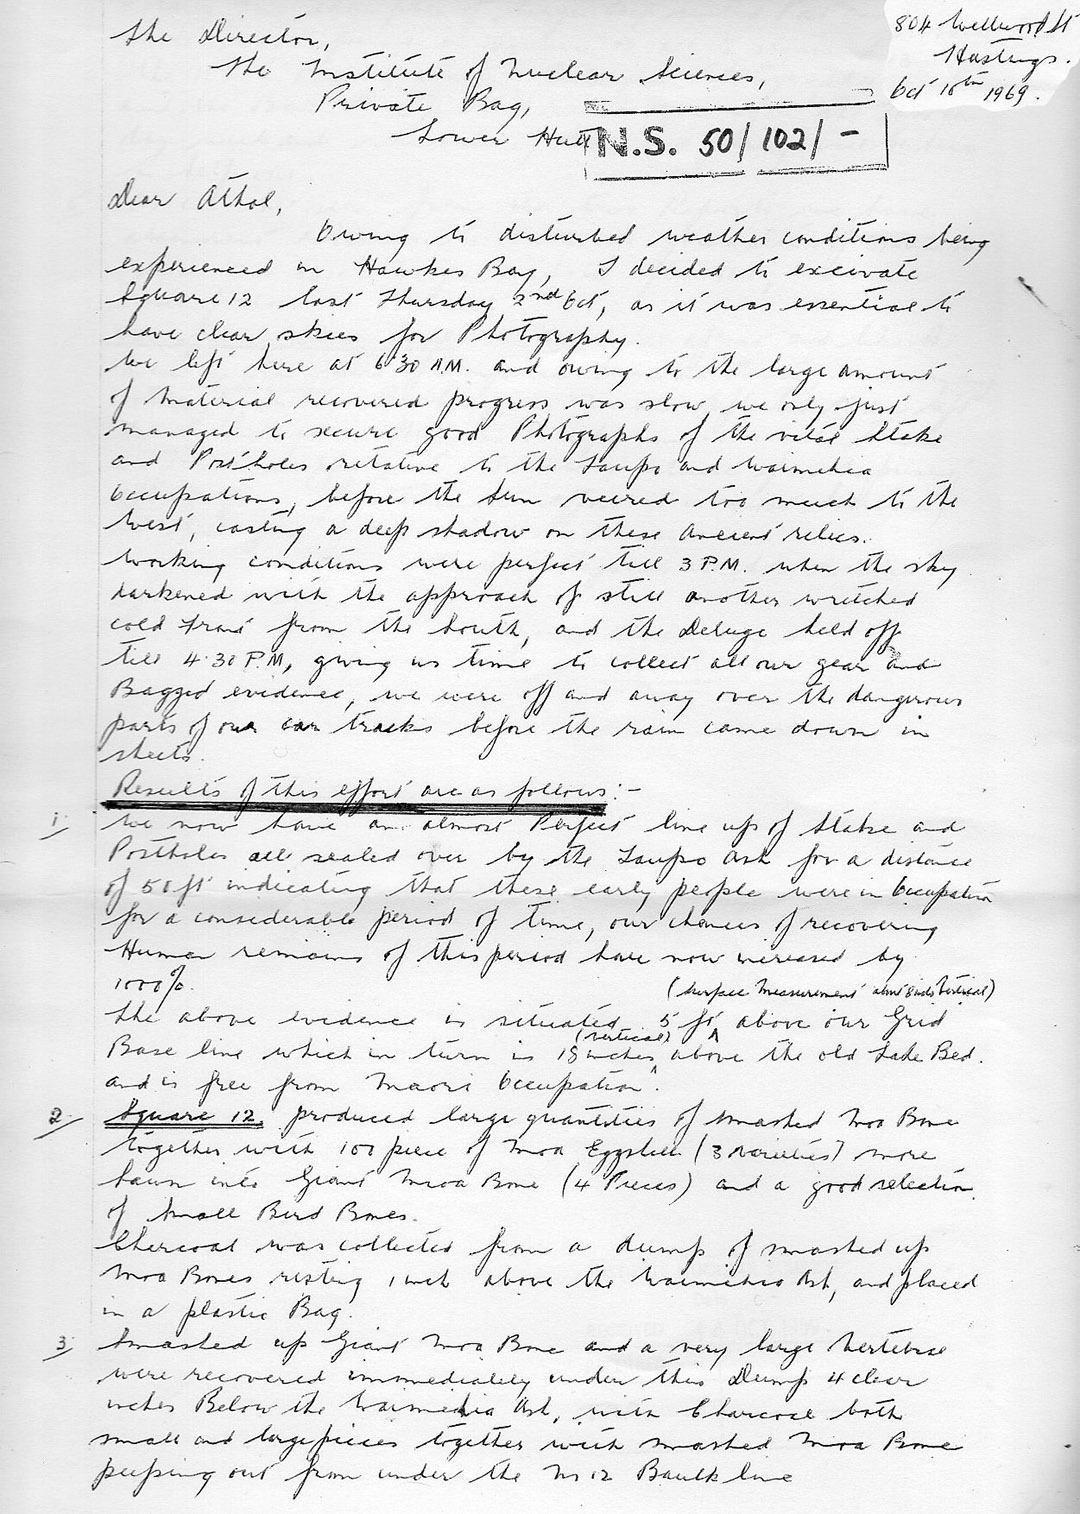 The Director,
The Institute of Nuclear Sciences,
Private Bag,
Lower Hutt
804 Wellwood St
Hastings.
Oct 10th 1969.
N.S. 50/102/-
Dear Athol,
Owing to disturbed weather conditions being
experienced in Hawkes Bay, I decided to excivate
Square 12 last Thursday 2nd Oct, as it was essential to
have clear skies for Photography.
We left here at 6.30 A.M. and owing to the large amount
of material recovered progress was slow, we only just
managed to secure good Photographs of the vital Stake
and Postholes relative to the Taupo and Waimihia
Occupations, before the Sun veered too much to the
West, casting a deep shadow on these Ancient relics.
Working conditions were perfect till 3 P.M. when the sky
darkened with the approach of still another wretched
cold front from the South, and the Deluge held off
till 4.30 P.M, giving us time to collect all our gear and
Bagged evidence, we were off and away over the dangerous
parts of our car tracks before the rain came down in
sheets.
Results of this effort are as follows:-
1/ We now have an almost Perfect line up of Stake and
Postholes all sealed over by the Taupo Ash for a distance
of 50 ft indicating that these early people were in Occupation
for a considerable period of time, our chances of recovering
Human remains of this period have now increased by
100%.
(Surface Measurement about 8 inches Vertical)
The above evidence is situated 5 ft above our Grid
(Vertical)
Base line which in turn is 18 inches above the old Lake Bed.
and is free from Maori Occupation.
2/ Square 12, produced large quantities of smashed Moa Bone
together with 100 piece of Moa Eggshell (3 varieties) more
sawn into Giant Moa Bone (4 Pieces) and a good selection
of Small Bird Bones.
Charcoal was collected from a dump of smashed up
Moa Bones resting 1 inch above the Waimihia Ash, and placed
in a plastic Bag.
3/ Smashed up Giant Moa Bone and a very large Vertebrae
were recovered immediately under this Dump 4 clear
inches Below the Waimihia Ash, with Charcoal both
small and large pieces together with smashed Moa Bone
peeping out from under the 12 Baulk line